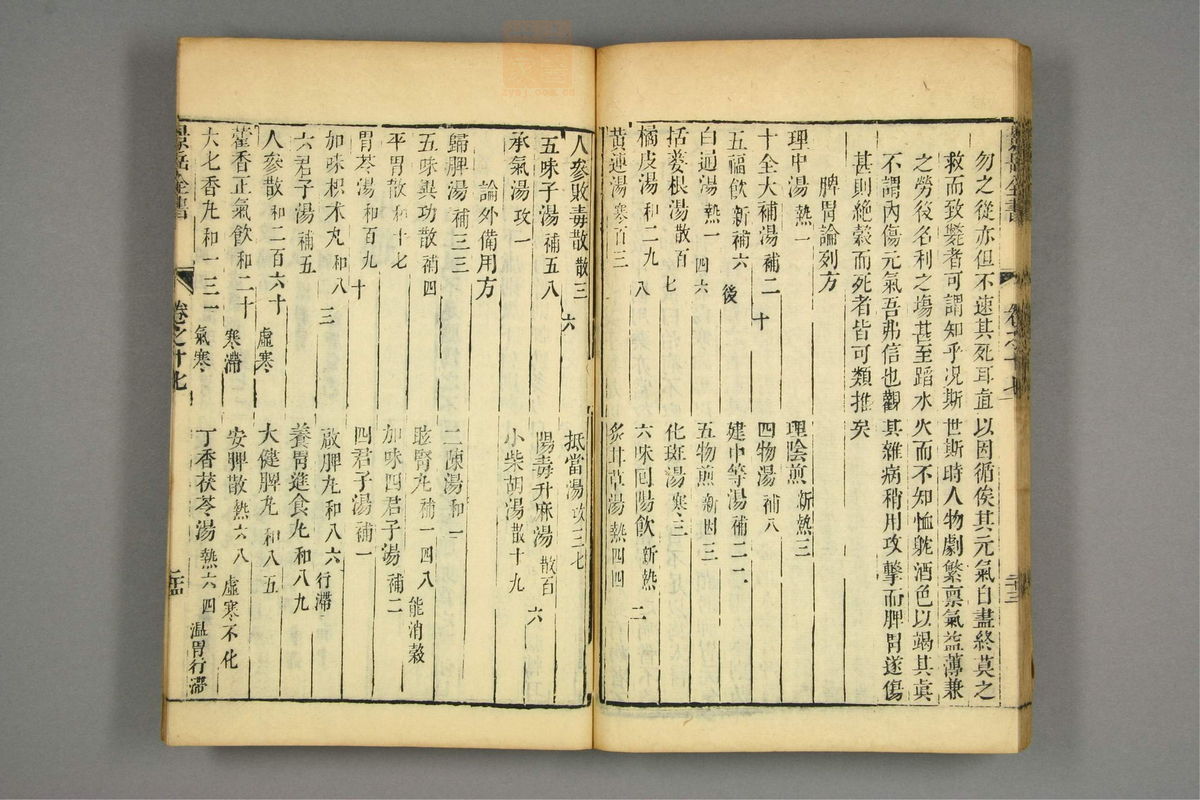 景岳全書 卷之十七 二十三
勿之從亦但不速其死耳直以因循俟其元氣自盡終莫之
救而致斃者可謂知乎况斯世斯時人物劇繁稟氣益薄兼
之勞役名利之塲甚至蹈水火而不知恤躭酒色以竭其眞
不謂內傷元氣吾弗信也觀其雜病稍用攻擊而脾胃遂傷
甚則絶穀而死者皆可類推矣
脾胃論列方
理中湯 熱一
理陰煎 新熱三
十全大補湯 補二十
四物湯 補八
五福飲 新補六
建中等湯 補二二
白通湯 熱一四六
後
五物煎 新因三
括蔞根湯 散百七
化斑湯 寒三
橘皮湯 和二九八
六味回陽飲 新熱二
黄連湯 寒百三
炙甘草湯 熱四四
人參敗毒散 散三六
抵當湯 攻三七
五味子湯 補五八
陽毒升麻湯 散百六
承氣湯 攻一
小柴胡湯 散十九
論外備用方
歸脾湯 補三三
二陳湯 和一
五味異功散 補四
胘腎丸 補一四八 能消穀
平胃散 和十七
加味四君子湯 補二
胃苓湯 和百九十
四君子湯 補一
加味枳朮丸 和八三
啟脾丸 和八六 行滯
六君子湯 補五
養胃進食丸 和八九
人參散 和二百六十 虛寒
大健脾丸 和八五
藿香正氣飲 和二十 寒滯
安脾散 熱六八 虛寒不化
大七香丸 和一三一 氣寒
丁香茯苓湯 熱六四 温胃行滯
景岳全書 卷之十七